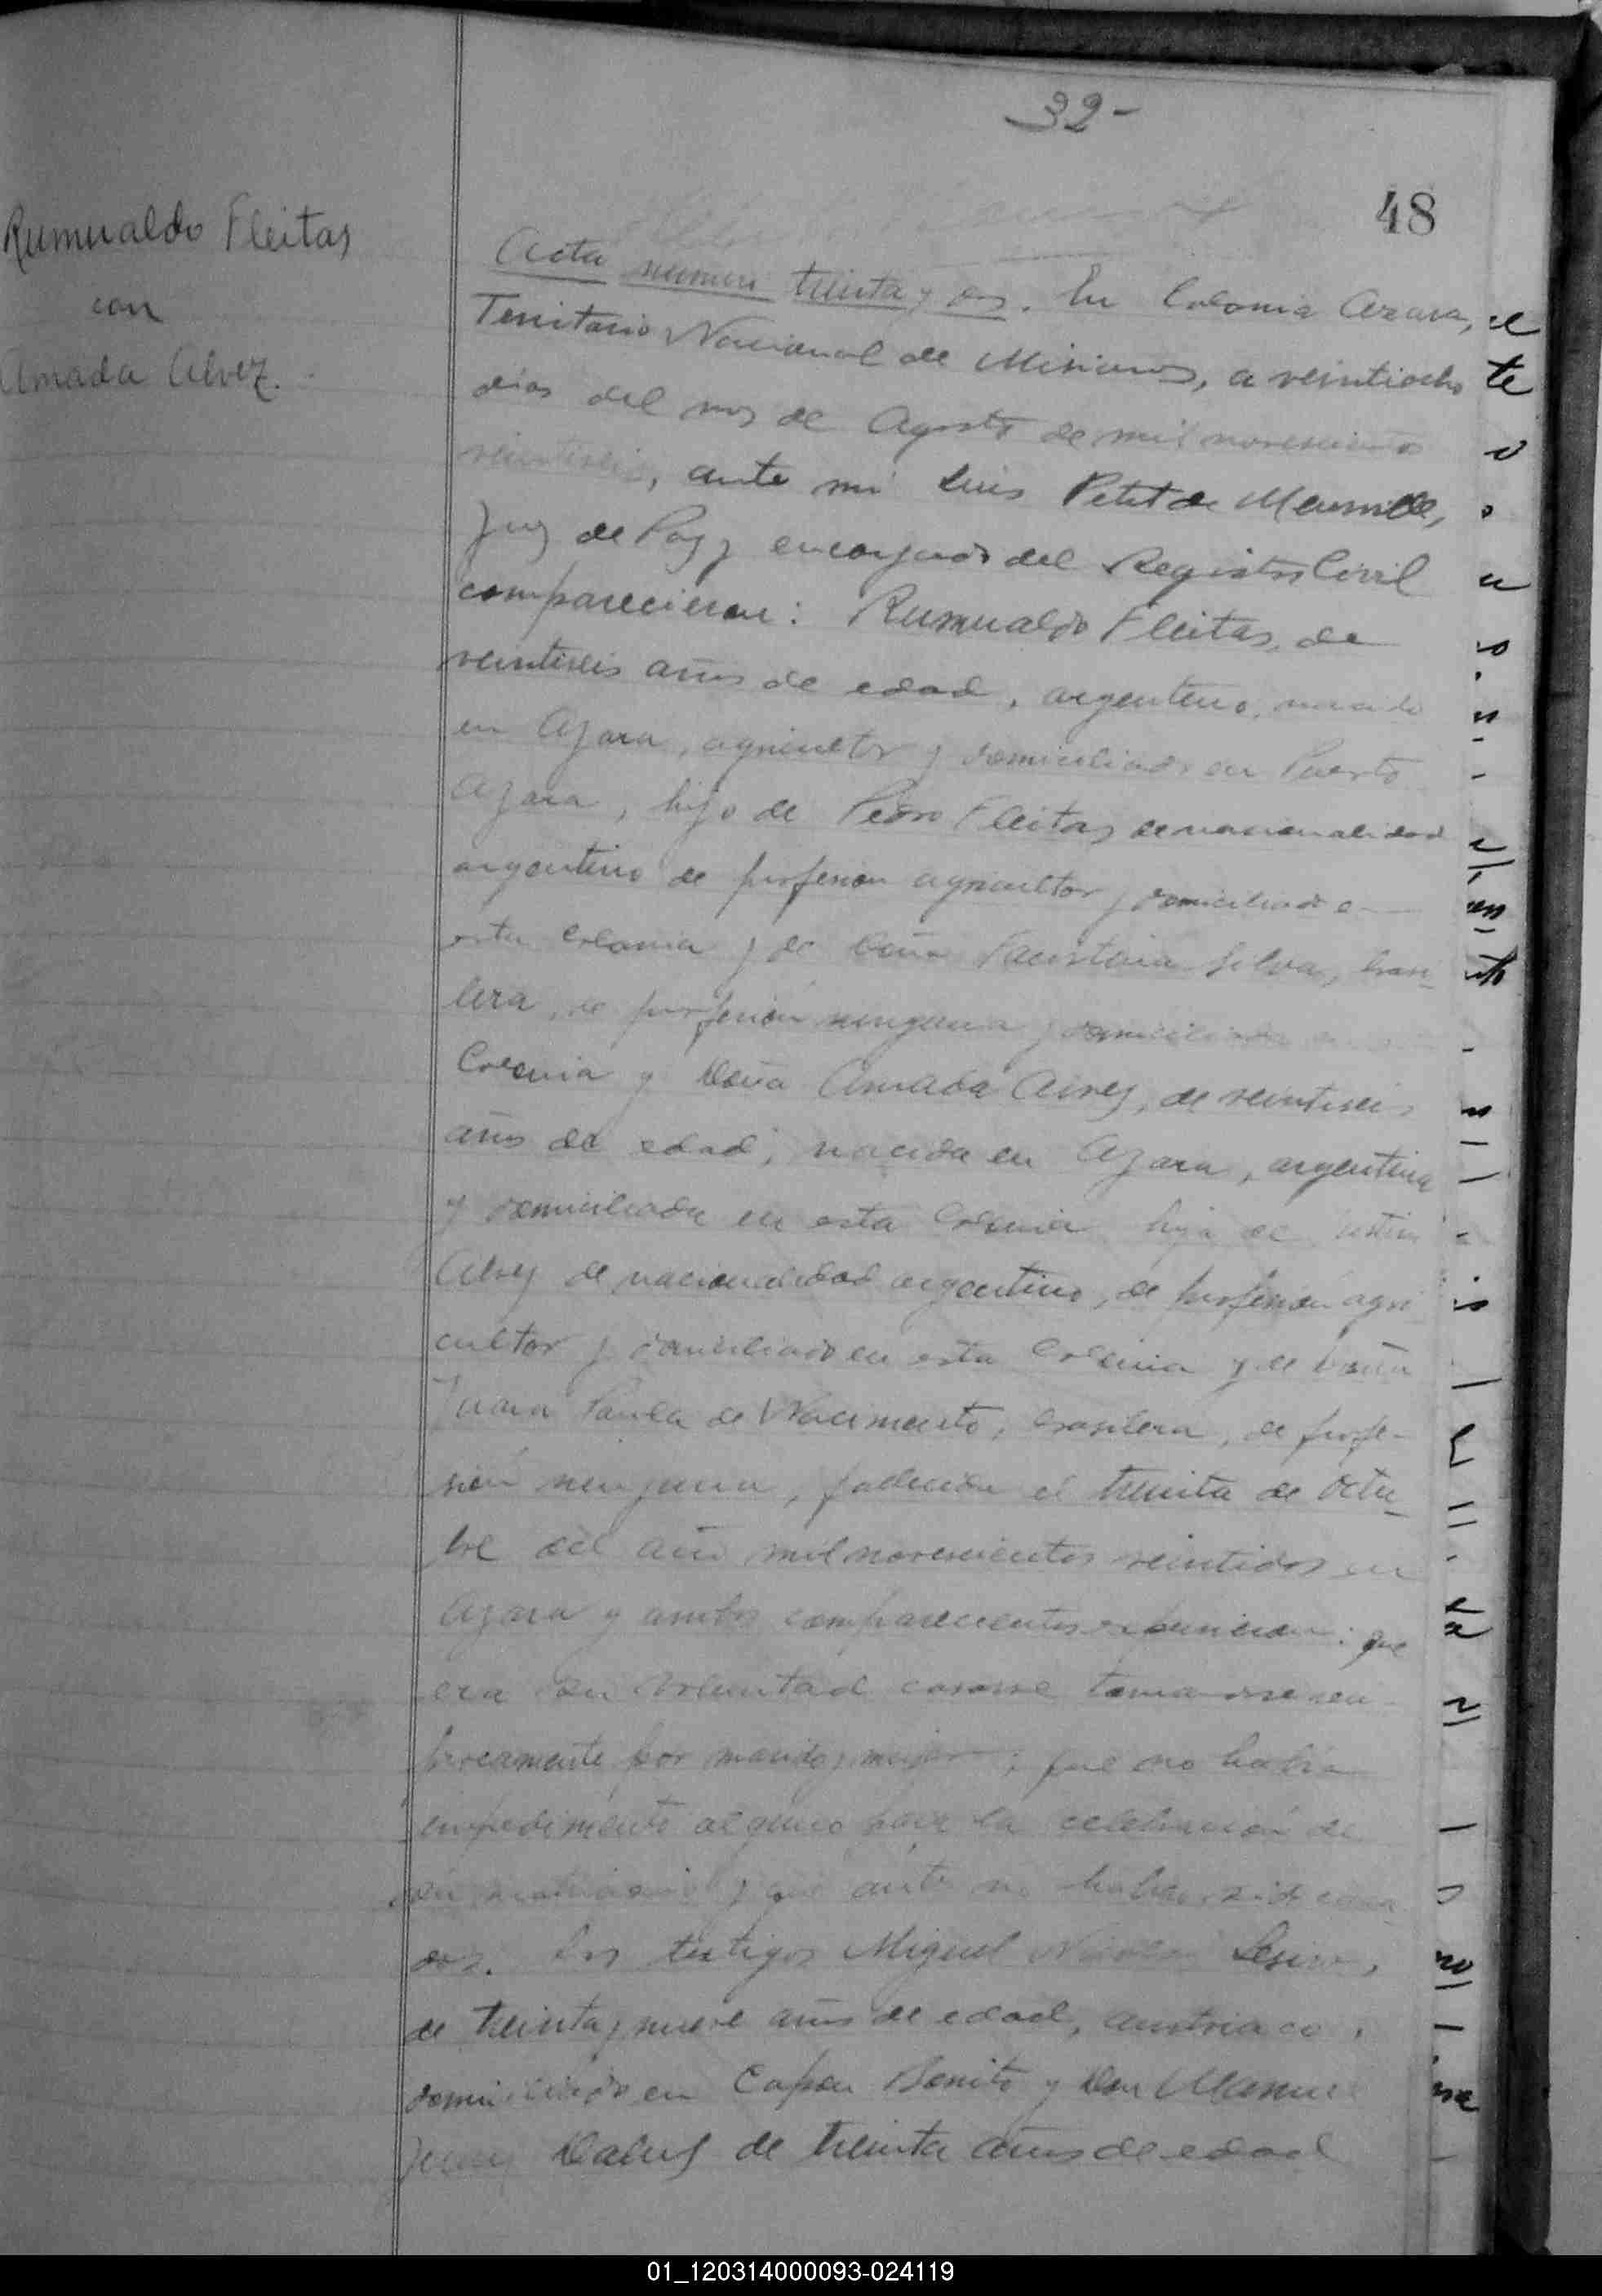 32-
48
Rumualdo Fleitas
con
Amada Alvez.
Acta numero treinta y dos. En Colonia Azara,
Territorio Nacional de Misiones, a veintiocho
dias del mes de Agosto de mil novecientos
veintiseis, ante mi Luis Petit de Meurville,
Juez de Paz y encargado del Registro Civil
comparecieron: Rumualdo Fleitas, de
veintiseis años de edad, argentino, nacido
en Azara, agricultor y domiciliado en Puerto
Azara, hijo de Pedro Fleitas de nacionalidad
argentino de profesion agricultor y domiciliado en
esta Colonia y de Doña Silva, brasi-
lera, de profesión ninguna y domiciliada en
Colonia y Doña Amada Alvez, de veintiseis
años de edad, nacida en Azara, argentina
y domiciliada en esta Colonia hija de
Alvez de nacionalidad argentino, de profesion agri
cultor y domiciliado en esta Colonia y de Doña
Juana Paula de Nacimento, brasilera, de profe-
sión ninguna, fallecida el treinta de Octu-
bre del año mil novecientos veintidos en
Azara y ambos comparecientes expusieron: que
era su voluntad casarse tomandose reci-
procamente por marido y mujer; que no habia
impedimento alguno para la celebracion de
su matrimonio y que antes no habian sido casa-
dos. Los testigos Miguel
de treinta y nueve años de edad, austriaco,
domiciliado en Capon Bonito y Don Manuel
de treinta años de edad
01_120314000093-024119